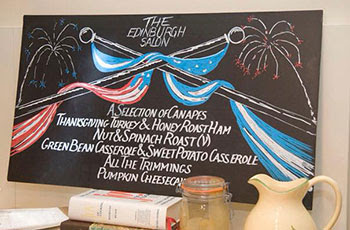 THE
EDINBURGH
SALON
A SELECTION OF CANAPES
THANKSGIVING TURKEY & HONEY ROAST HAM
NUT & SPINACH ROAST (V)
GREEN BEAN CASSEROLE & SWEET POTATO CASSEROLE
ALL THE TRIMMINGS
PUMPKIN CHEESECA